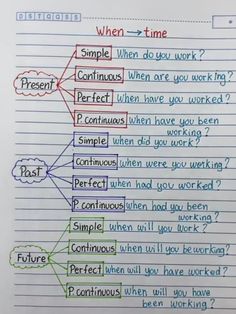 D S T Q Q S S
When → time
Simple When do you work?
Continuous When are you working?
Present
Perfect When have you worked?
P. continuous When have you been
working?
Simple when did you work?
Continuous when were you working?
Past
Perfect when had you worked?
P continuous when had you been
working?
Simple when will you work?
Continuous when will you be working?
Future
Perfect when will you have worked?
P continuous when will you have
been working?